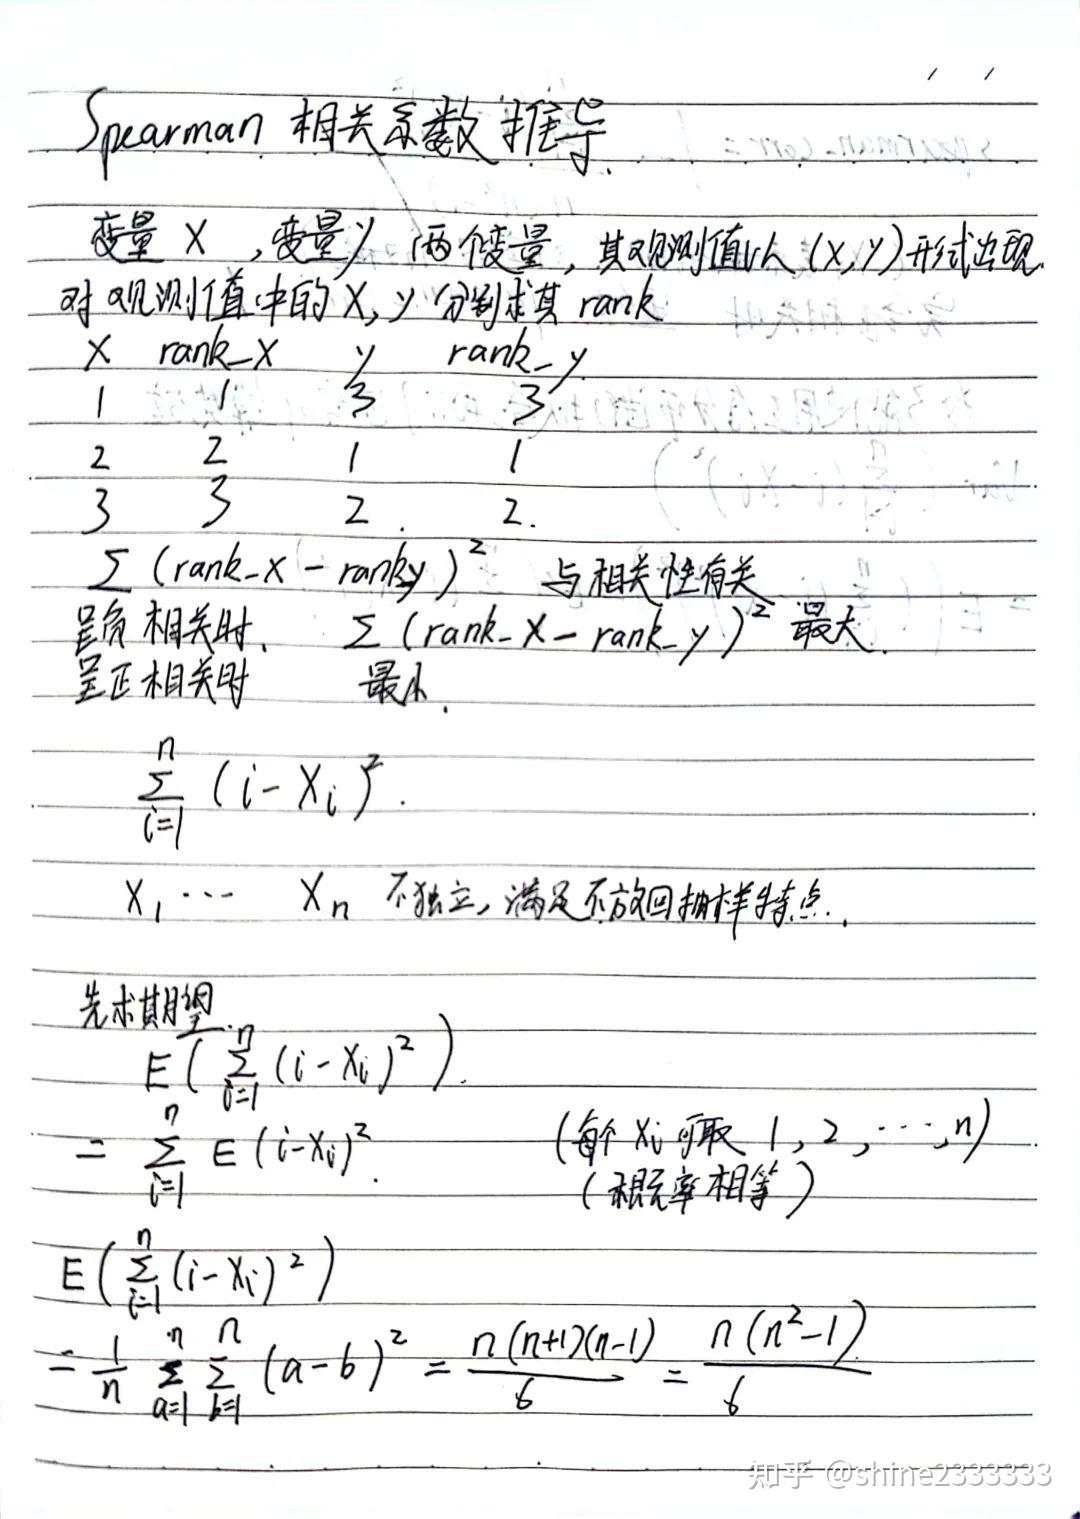 Spearman 相关系数推导
变量 X ,变量y 两个变量, 其观测值以 (x,y)形式出现.
对观测值中的X, y 分别求其 rank
X rank_X y rank_y
1 1 3 3
2 2 1 1
3 3 2 2.
∑ (rank_X - ranky)² 与相关性有关
呈负相关时. ∑ (rank_X - rank_y)² 最大.
呈正相关时 最小.
∑_{i=1}^{n} (i - X_i)².
X_1 ⋯ X_n 不独立, 满足不放回抽样特点.
先求期望.
E(∑_{i=1}^{n} (i - X_i)²).
= ∑_{i=1}^{n} E(i-X_i)². (每个 X_i 可取 1, 2, ⋯, n)
(概率相等)
E(∑_{i=1}^{n} (i-X_i)²)
= 1/n ∑_{a=1}^{n} ∑_{b=1}^{n} (a-b)² = n(n+1)(n-1)/6 = n(n²-1)/6
知乎 @shine2333333